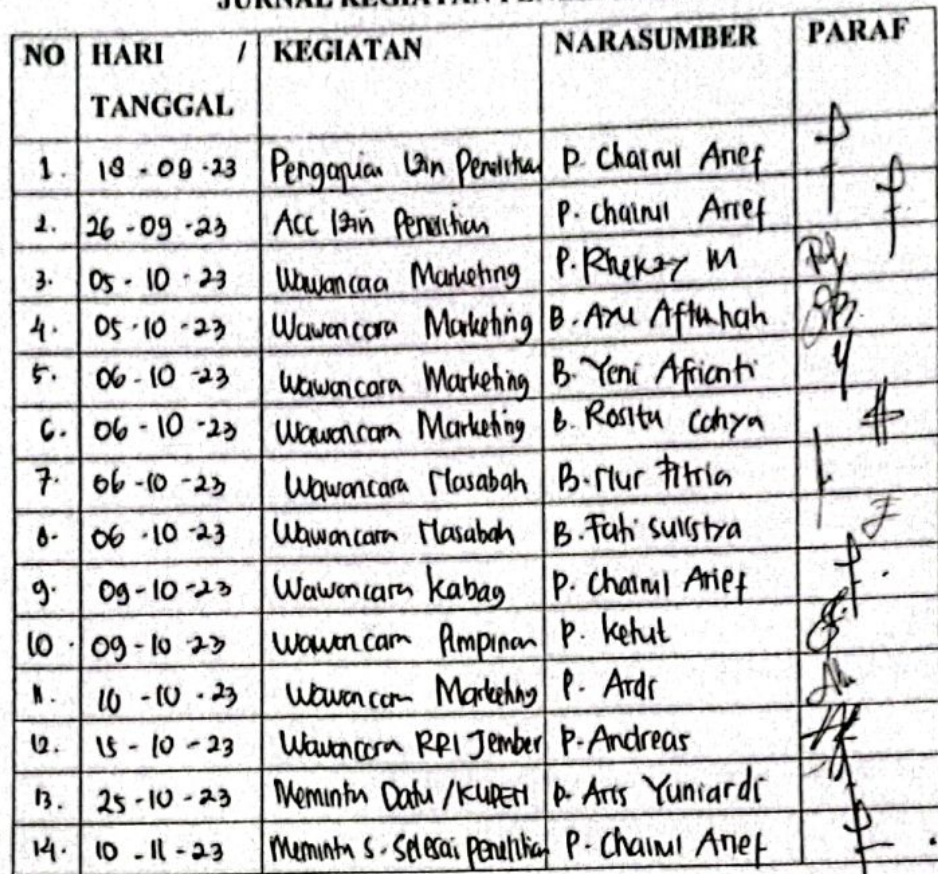 JURNAL KEGIATAN
NO HARI / TANGGAL KEGIATAN NARASUMBER PARAF
1. 18-09-23 Pengajuan Izin Penelitian P. Chairul Arief
2. 26-09-23 Acc Izin Penelitian P. Chairul Arief
3. 05-10-23 Wawancara Marketing P. Rhekzy M
4. 05-10-23 Wawancara Marketing B. Ayu Aftuhah
5. 06-10-23 Wawancara Marketing B. Yeni Afrianti
6. 06-10-23 Wawancara Marketing B. Rosita Cahya
7. 06-10-23 Wawancara Nasabah B. Nur Fitria
8. 06-10-23 Wawancara Nasabah B. Fati
9. 09-10-23 Wawancara Kabag P. Chairul Arief
10. 09-10-23 Wawancara Pimpinan P. Ketut
11. 10-10-23 Wawancara Marketing P. Ardi
12. 15-10-23 Wawancara RRI Jember P. Andreas
13. 25-10-23 Meminta Data / P. Aris Yuniardi
14. 10-11-23 Meminta S. Selesai Penelitian P. Chairul Arief